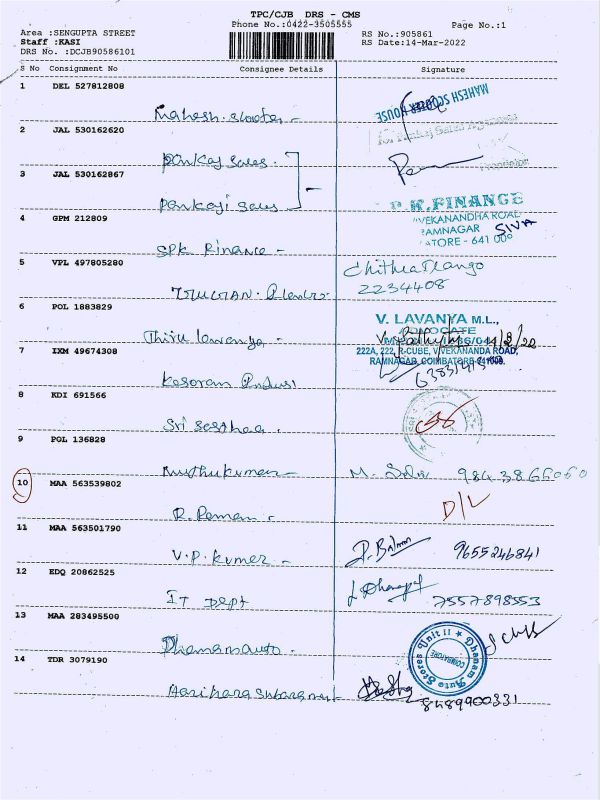 TPC/CJB DRS - CMS
Phone No.:0422-3505555
Page No.:1
Area :SENGUPTA STREET
Staff :KASI
DRS No. :DCJB90586101
RS No.:905861
RS Date:14-Mar-2022
S No Consignment No Consignee Details Signature
1 DEL 527812808
Mahesh. scooter -
MAHESH SCOOTER HOUSE
2 JAL 530162620
Pankaj sales.
3 JAL 530162867
Pankaji sales
4 GPM 212809
P.K.FINANCE
VIVEKANANDHA ROAD
RAMNAGAR SIVA
SPK Finance -
5 VPL 497805280
Chithra
2234408
6 POL 1883829
Thiru lavanya -
V. LAVANYA M.L.,
ADVOCATE
14/3/22
222A, 222, R-CUBE, VIVEKANANDA ROAD,
RAMNAGAR, COIMBATORE-641009.
7 IXM 49674308
Kesoram
8 KDI 691566
Sri
9 POL 136828
Muthukumar
M. 9843866060
10 MAA 563539802
R. Raman .
D/L
11 MAA 563501790
V. P. Kumar -
9655246841
12 EDQ 20862525
IT Dept
7557898553
13 MAA 283495500
Dhanamauto .
Dhanam Auto Stores Unit II
COIMBATORE
14 TDR 3079190
8489900331